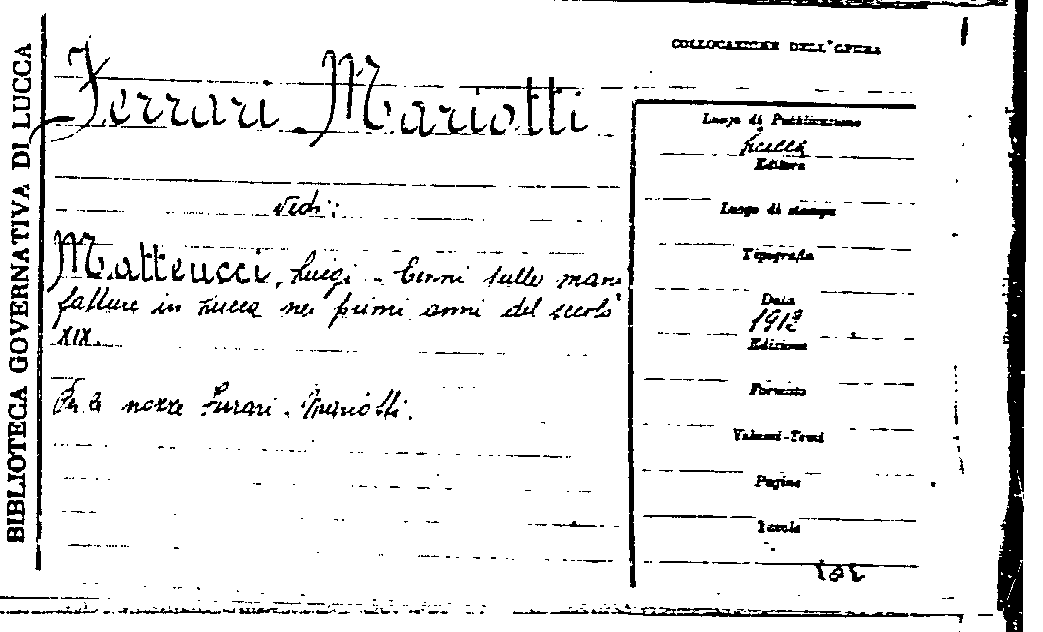 BIBLIOTECA GOVERNATIVA DI LUCCA
COLLOCAZIONE DELL'OPERA
Ferrari Mariotti
vedi:
Matteucci, Luigi - Cenni sulle mani
fatture in Lucca nei primi anni del secolo
XIX.
Per le nozze Ferrari - Mariotti.
Luogo di Pubblicazione
Lucca
Editore
Luogo di stampa
Tipografia
Data
Edizione
Formato
Volumi-Tomi
Pagine
Tavole